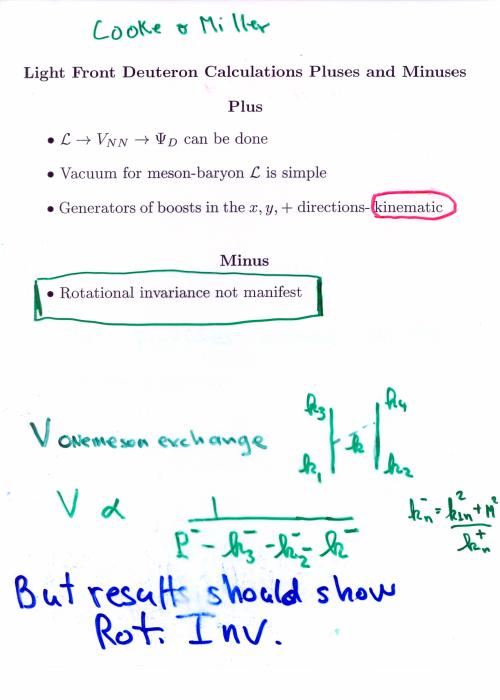 Cooke & Miller
Light Front Deuteron Calculations Pluses and Minuses
Plus
• ℒ → V_NN → Ψ_D can be done
• Vacuum for meson-baryon ℒ is simple
• Generators of boosts in the x, y, + directions- kinematic
Minus
• Rotational invariance not manifest
k₃ k₄
V one meson exchange k
k₁ k₂
V ∝ 1 / (P⁻ - k₃⁻ - k₂⁻ - k⁻) kₙ⁻ = (k⊥ₙ² + M²) / kₙ⁺
But results should show
Rot. Inv.